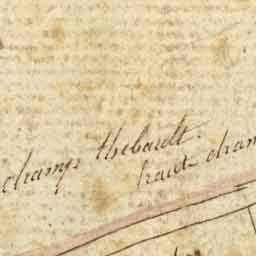 champs thebault.
haut cham